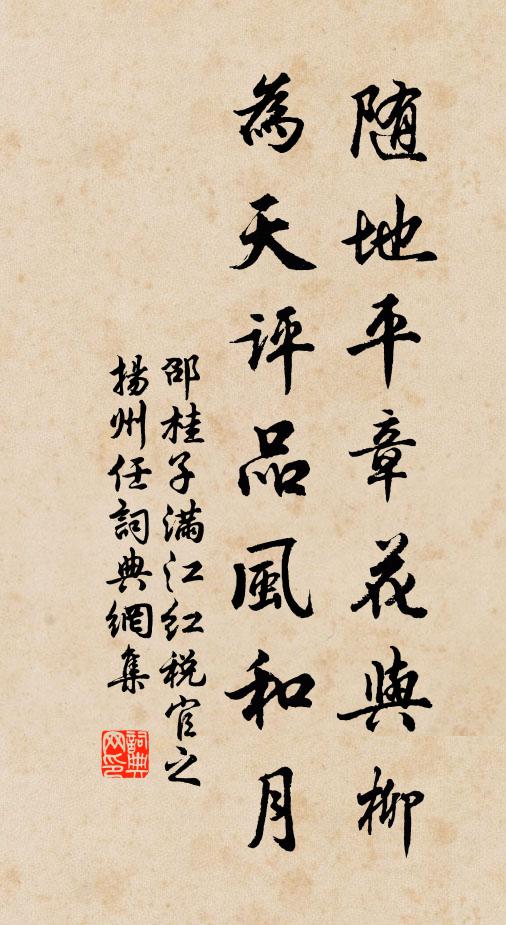 随地平章花與柳
為天評品風和月
邵桂子满江红税官之
揚州任詞典網集
詞典網印